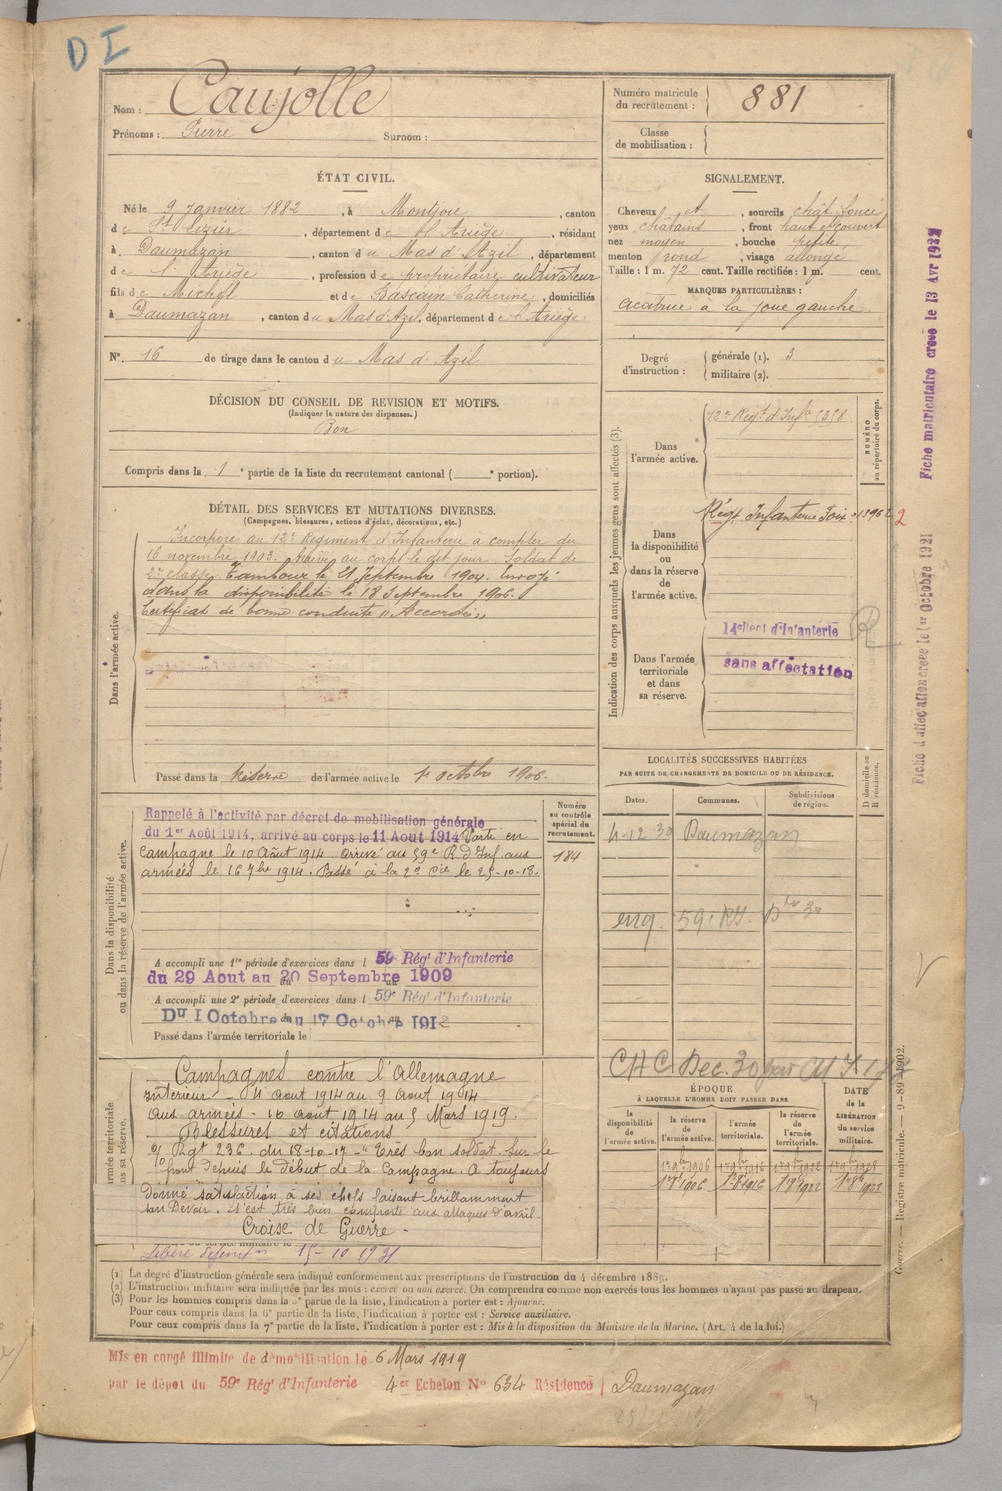 D I
Nom : Caujolle
Prénoms : Pierre Surnom :
Numéro matricule
du recrutement : 881
Classe
de mobilisation :
ÉTAT CIVIL.
Né le 9 Janvier 1882, à Montjoie, canton
de St Lizier, département de l'Ariège, résidant
à Daumazan, canton du Mas d'Azil, département
de l'Ariège, profession de propriétaire cultivateur
fils de Michel et de Bascain Catherine, domiciliés
à Daumazan, canton du Mas d'Azil, département de l'Ariège
N°. 16 de tirage dans le canton du Mas d'Azil
SIGNALEMENT.
Cheveux et, sourcils chât. foncé
yeux châtains, front haut et couvert
nez moyen, bouche petite,
menton rond, visage allongé
Taille : 1 m. 72 cent. Taille rectifiée : 1 m. cent.
MARQUES PARTICULIÈRES :
cicatrice à la joue gauche
Degré
d'instruction :
générale (1). 3
militaire (2).
DÉCISION DU CONSEIL DE REVISION ET MOTIFS.
(Indiquer la nature des dispenses.)
Bon
Compris dans la 1e partie de la liste du recrutement cantonal ( e portion).
DÉTAIL DES SERVICES ET MUTATIONS DIVERSES.
(Campagnes, blessures, actions d'éclat, décorations, etc.)
Dans l'armée active.
Incorporé au 12e Régiment d'Infanterie à compter du
16 novembre 1903. Arrivé au corps le dit jour. Soldat de
2e classe. Tambour le 21 Septembre 1904. Envoyé
dans la disponibilité le 18 Septembre 1906.
Certificat de bonne conduite "Accordé"
Passé dans la Réserve de l'armée active le 1er octobre 1906.
Indication des corps auxquels les jeunes gens sont affectés (3).
Dans
l'armée active.
12e Régt d'Infie 5358
NUMÉRO
au répertoire du corps.
Dans
la disponibilité
ou
dans la réserve
de
l'armée active.
Régt Infanterie Foix
2
Dans l'armée
territoriale
et dans
sa réserve.
14e Regt d'Infanterie
sans affectation
LOCALITÉS SUCCESSIVES HABITÉES
PAR SUITE DE CHANGEMENTS DE DOMICILE OU DE RÉSIDENCE.
Dates. Communes. Subdivisions
de région. D domicile ou
R résidence.
4-12-30 Daumazan
Dans la disponibilité
ou dans la réserve de l'armée active.
Numéro
au contrôle
spécial du
recrutement.
184
Rappelé à l'activité par décret de mobilisation générale
du 1er Août 1914, arrivé au corps le 11 Aout 1914 Parti en
campagne le 10 Août 1914 arrivé au 59e R. d'Inf. aux
armées le 16 7bre 1914. Passé à la 2e Cie le 25-10-18.
A accompli une 1re période d'exercices dans l 59 Rég' d'Infanterie
du 29 Aout au 20 Septembre 1909
A accompli une 2e période d'exercices dans l 59e Rég' d'Infanterie
Du 1 Octobre au 17 Octobre 1912
Passé dans l'armée territoriale le
armée territoriale
sa réserve.
Campagnes contre l'Allemagne
Intérieur - 4 Aout 1914 au 9 Aout 1914
aux armées - 10 Aout 1914 au 5 Mars 1919.
Blessures et citations
O/ Rgt 236. du 18-10-17 - "Très bon soldat. Sur le
front depuis le début de la Campagne. A toujours
donné satisfaction à ses chefs faisant brillamment
son Devoir. S'est très bien comporté aux attaques d'avril.
Croix de Guerre -
Libéré définitt 15-10 1931
ÉPOQUE
À LAQUELLE L'HOMME DOIT PASSER DANS
la
disponibilité
de
l'armée active.
la réserve
de
l'armée active.
l'armée
territoriale.
la réserve
de
l'armée
territoriale.
DATE
de la
LIBÉRATION
du service
militaire.
(1) Le degré d'instruction générale sera indiqué conformément aux prescriptions de l'instruction du 4 décembre 1889.
(2) L'instruction militaire sera indiquée par les mots : exercé ou non exercé. On comprendra comme non exercés tous les hommes n'ayant pas passé au drapeau.
(3) Pour les hommes compris dans la 5e partie de la liste, l'indication à porter est : Ajourné.
Pour ceux compris dans la 6e partie de la liste, l'indication à porter est : Service auxiliaire.
Pour ceux compris dans la 7e partie de la liste, l'indication à porter est : Mis à la disposition du Ministre de la Marine. (Art. 4 de la loi.)
Mis en congé illimité de démobilisation le 6 Mars 1919
par le dépot du 59e Rég' d'Infanterie 4er Echelon N° 634 Résidence Daumazan
Fiche matriculaire creée le 13 Avr 1922
Fiche d'affectation creée le 1er Octobre 1921
Guerre. — Registre matricule. — 9-89-1902.